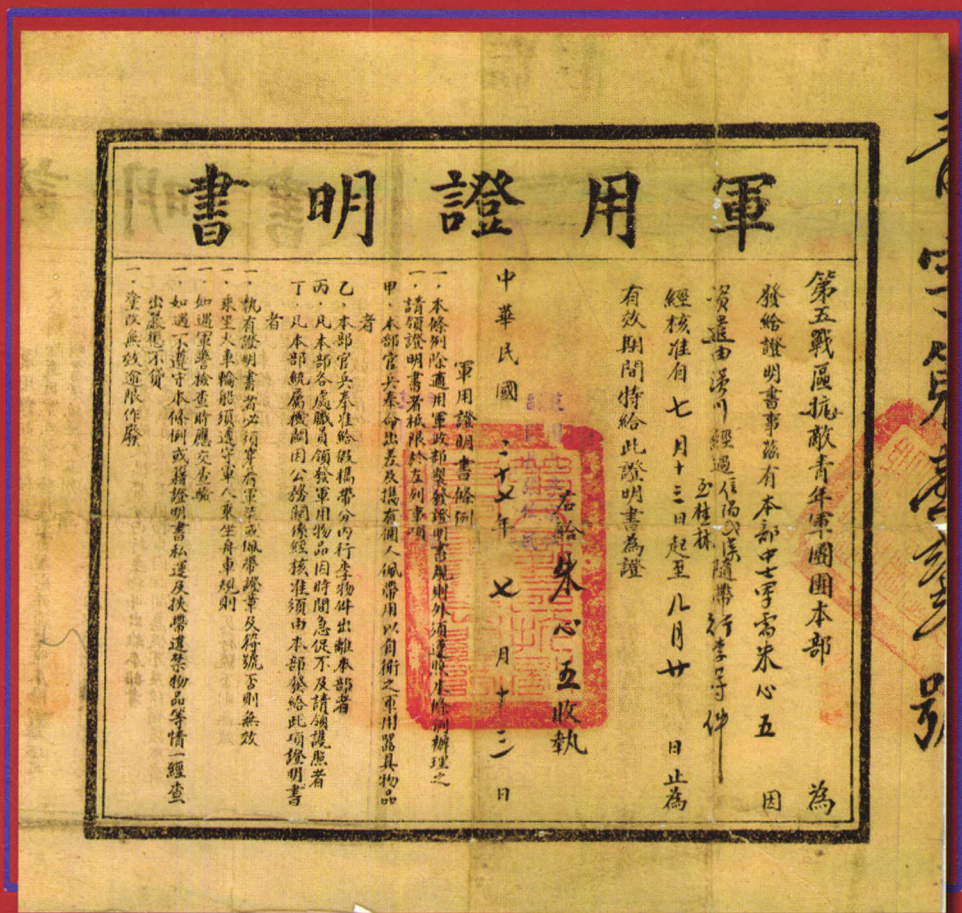 軍用證明書
第五戰區抗敵青年軍團團本部 為
發給證明書事茲有本部中士軍需朱心五 因
資遣由潢川經過信陽武漢隨帶行李等件
至桂林
經核准自七月十三日起至八月廿 日止為
有效期間特給此證明書為證
右給朱心五收執
中華民國二十七年七月十三日
軍用證明書條例
一．本條例除適用軍政部製發證明書規則外須遵照本條例辦理之
一．請領證明書者祇限於左列事項
甲．本部官兵奉命出差及攜有個人佩帶用以自衛之軍用器具物品
者
乙．本部官兵奉准給假攜帶分內行李物件出離本部者
丙．凡本部各處職員領發軍用物品因時間急促不及請領護照者
丁．凡本部統屬機關因公務關係經核准須由本部發給此項證明書
者
一．執有證明書者必須穿有軍裝或佩帶證章及符號否則無效
一．乘坐火車輪船須遵守軍人乘坐舟車規則
一．如遇軍警檢查時應交查驗
一．如遇不遵守本條例或藉證明書私運及挾帶違禁物品等情一經查
出嚴懲不貸
一．塗改無效逾限作廢
號